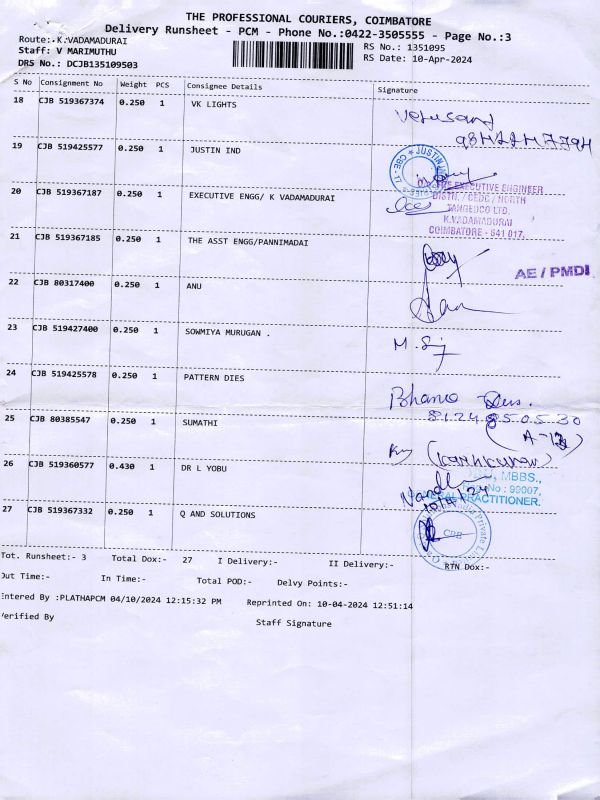 THE PROFESSIONAL COURIERS, COIMBATORE
Delivery Runsheet - PCM - Phone No.:0422-3505555 - Page No.:3
Route:.K.VADAMADURAI
Staff: V MARIMUTHU
DRS No.: DCJB135109503
RS No.: 1351095
RS Date: 10-Apr-2024
S No Consignment No Weight PCS Consignee Details Signature
18 CJB 519367374 0.250 1 VK LIGHTS
19 CJB 519425577 0.250 1 JUSTIN IND
20 CJB 519367187 0.250 1 EXECUTIVE ENGG/ K VADAMADURAI
EXECUTIVE ENGINEER
DISTN. / CEDC / NORTH
TANGEDCO LTD.
K.VADAMADURAI
COIMBATORE - 641 017.
21 CJB 519367185 0.250 1 THE ASST ENGG/PANNIMADAI
AE / PMDI
22 CJB 80317400 0.250 1 ANU
23 CJB 519427400 0.250 1 SOWMIYA MURUGAN .
24 CJB 519425578 0.250 1 PATTERN DIES
25 CJB 80385547 0.250 1 SUMATHI
26 CJB 519360577 0.430 1 DR L YOBU
MBBS.,
No: 99007,
PRACTITIONER.
27 CJB 519367332 0.250 1 Q AND SOLUTIONS
CBE
Tot. Runsheet:- 3 Total Dox:- 27 I Delivery:- II Delivery:- RTN Dox:-
Out Time:- In Time:- Total POD:- Delvy Points:-
Entered By :PLATHAPCM 04/10/2024 12:15:32 PM Reprinted On: 10-04-2024 12:51:14
Verified By Staff Signature